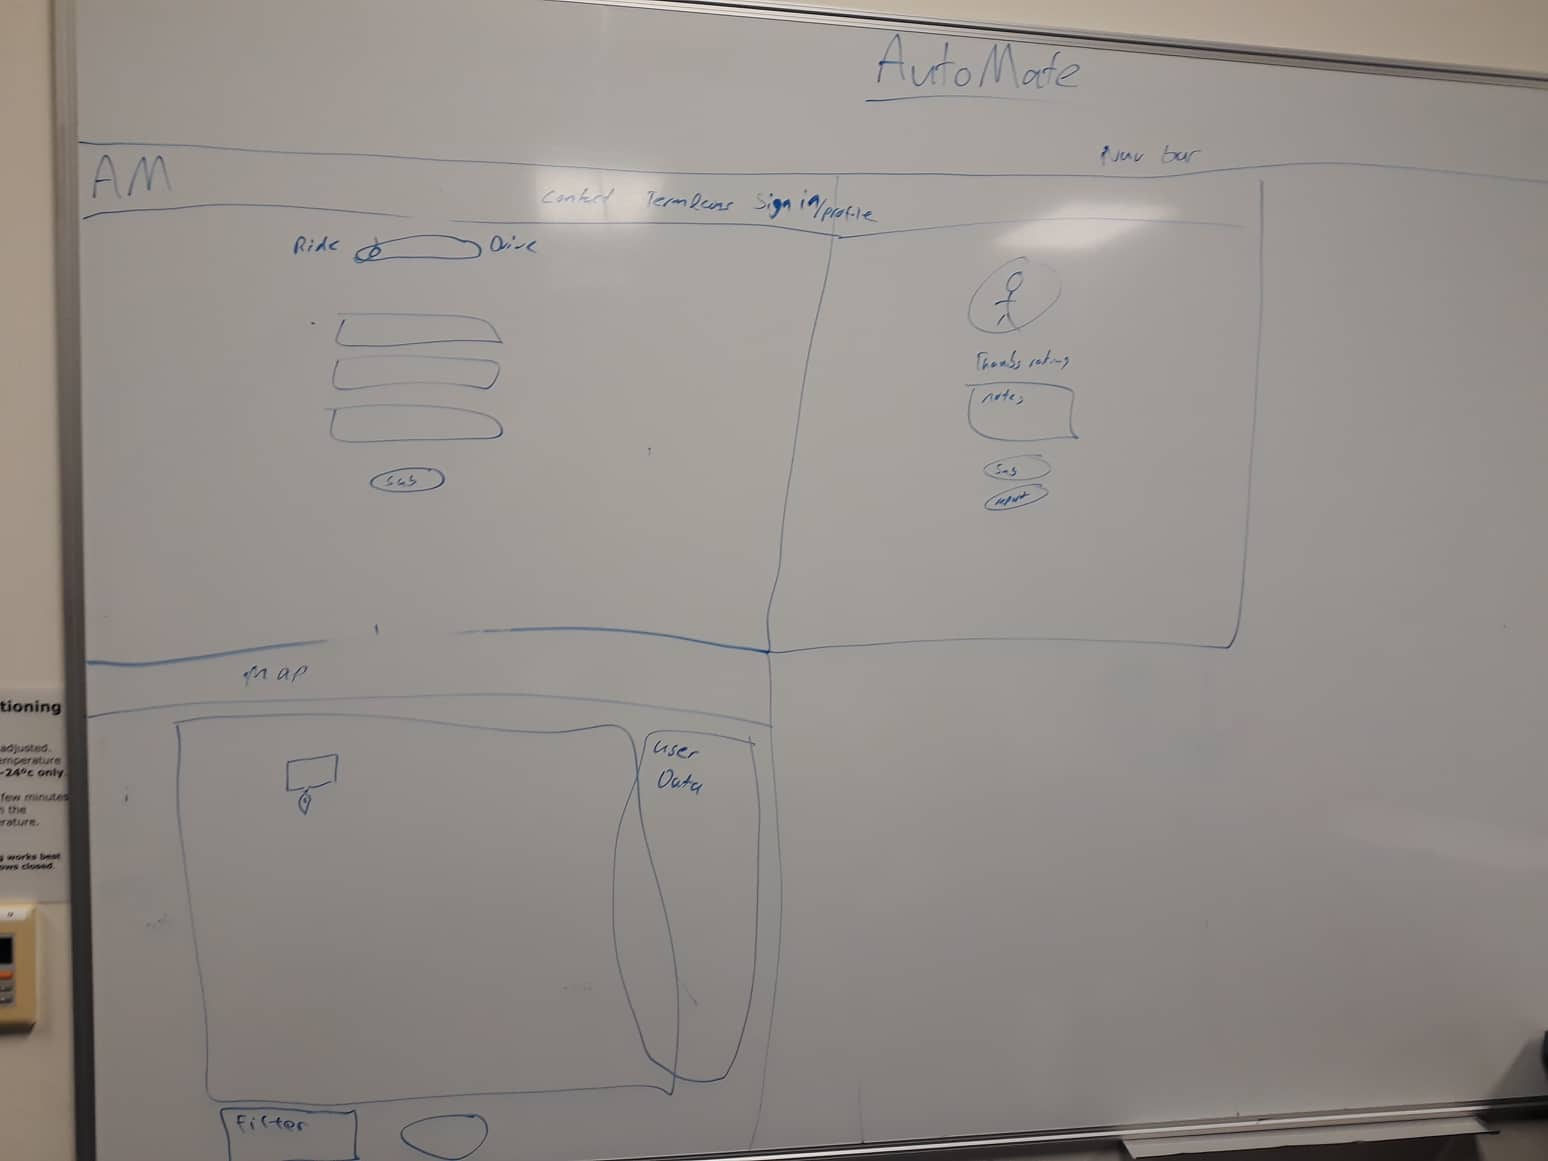 AutoMate
Nav bar
AM
Contact
Sign in/profile
Ride
Drive
sub
Thumbs rating
notes
sub
report
map
User
Data
Filter
tioning
adjusted.
emperature
-24°c only.
few minutes
n the
erature.
g works best
ows closed.